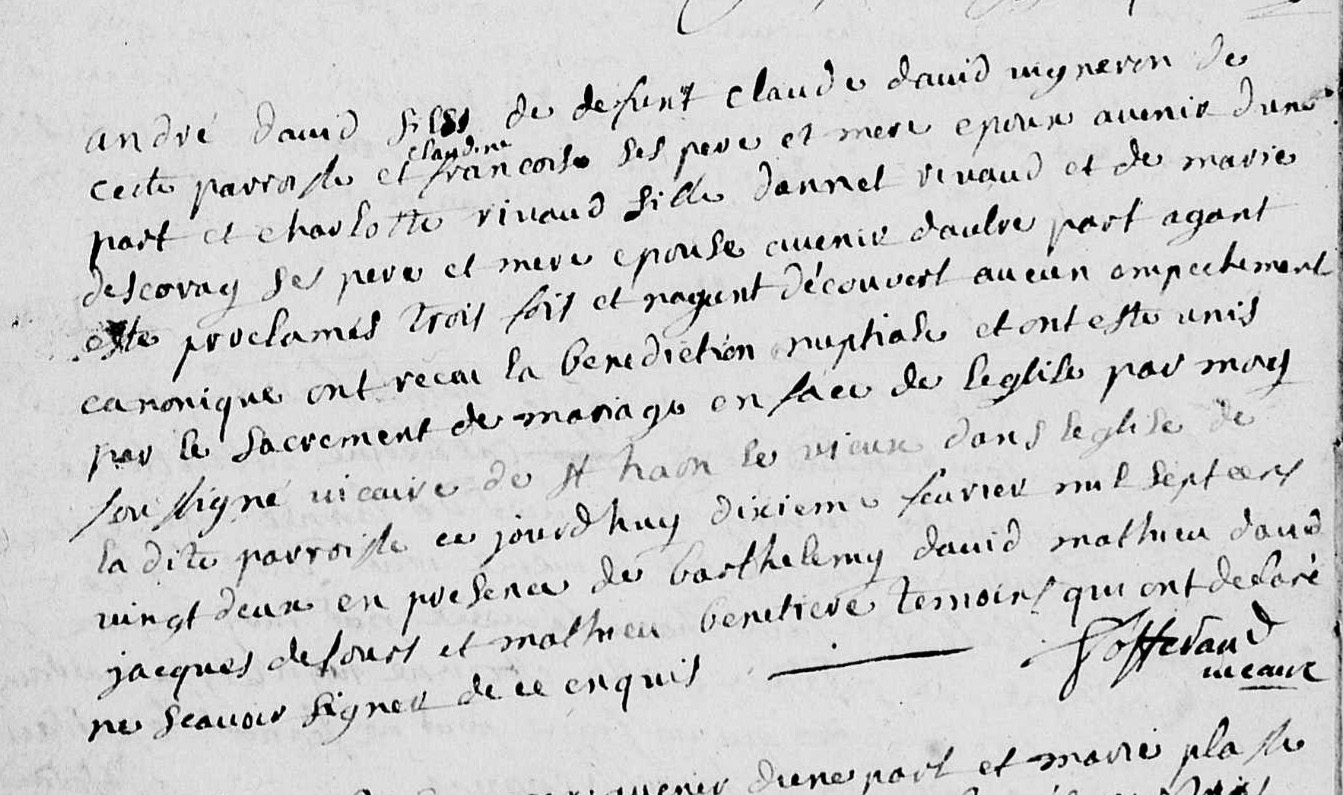 andré david fils de defunt claude david vigneron de
cette parroisse et claudine francoise ses pere et mere epoux avenir dune
part et charlotte rivaud fille dannet rivaud et de marie
descoray ses pere et mere epouse avenir daultre part ayant
este proclamés trois fois et nayant découvert aucun empechement
canonique ont recu la benediction nuptiale et ont este unis
par le sacrement de mariage en face de leglise par moy
soussigné vicaire de st haon le vieux dans leglise de
la dite parroisse ce jourdhuy dixieme fevrier mil sept cent
vingt deux en presence de barthelemy david mathieu david
jacques defours et mathieu benetiere temoins qui ont declaré
ne scavoir signer de ce enquis
vicaire
avenir dune part et marie